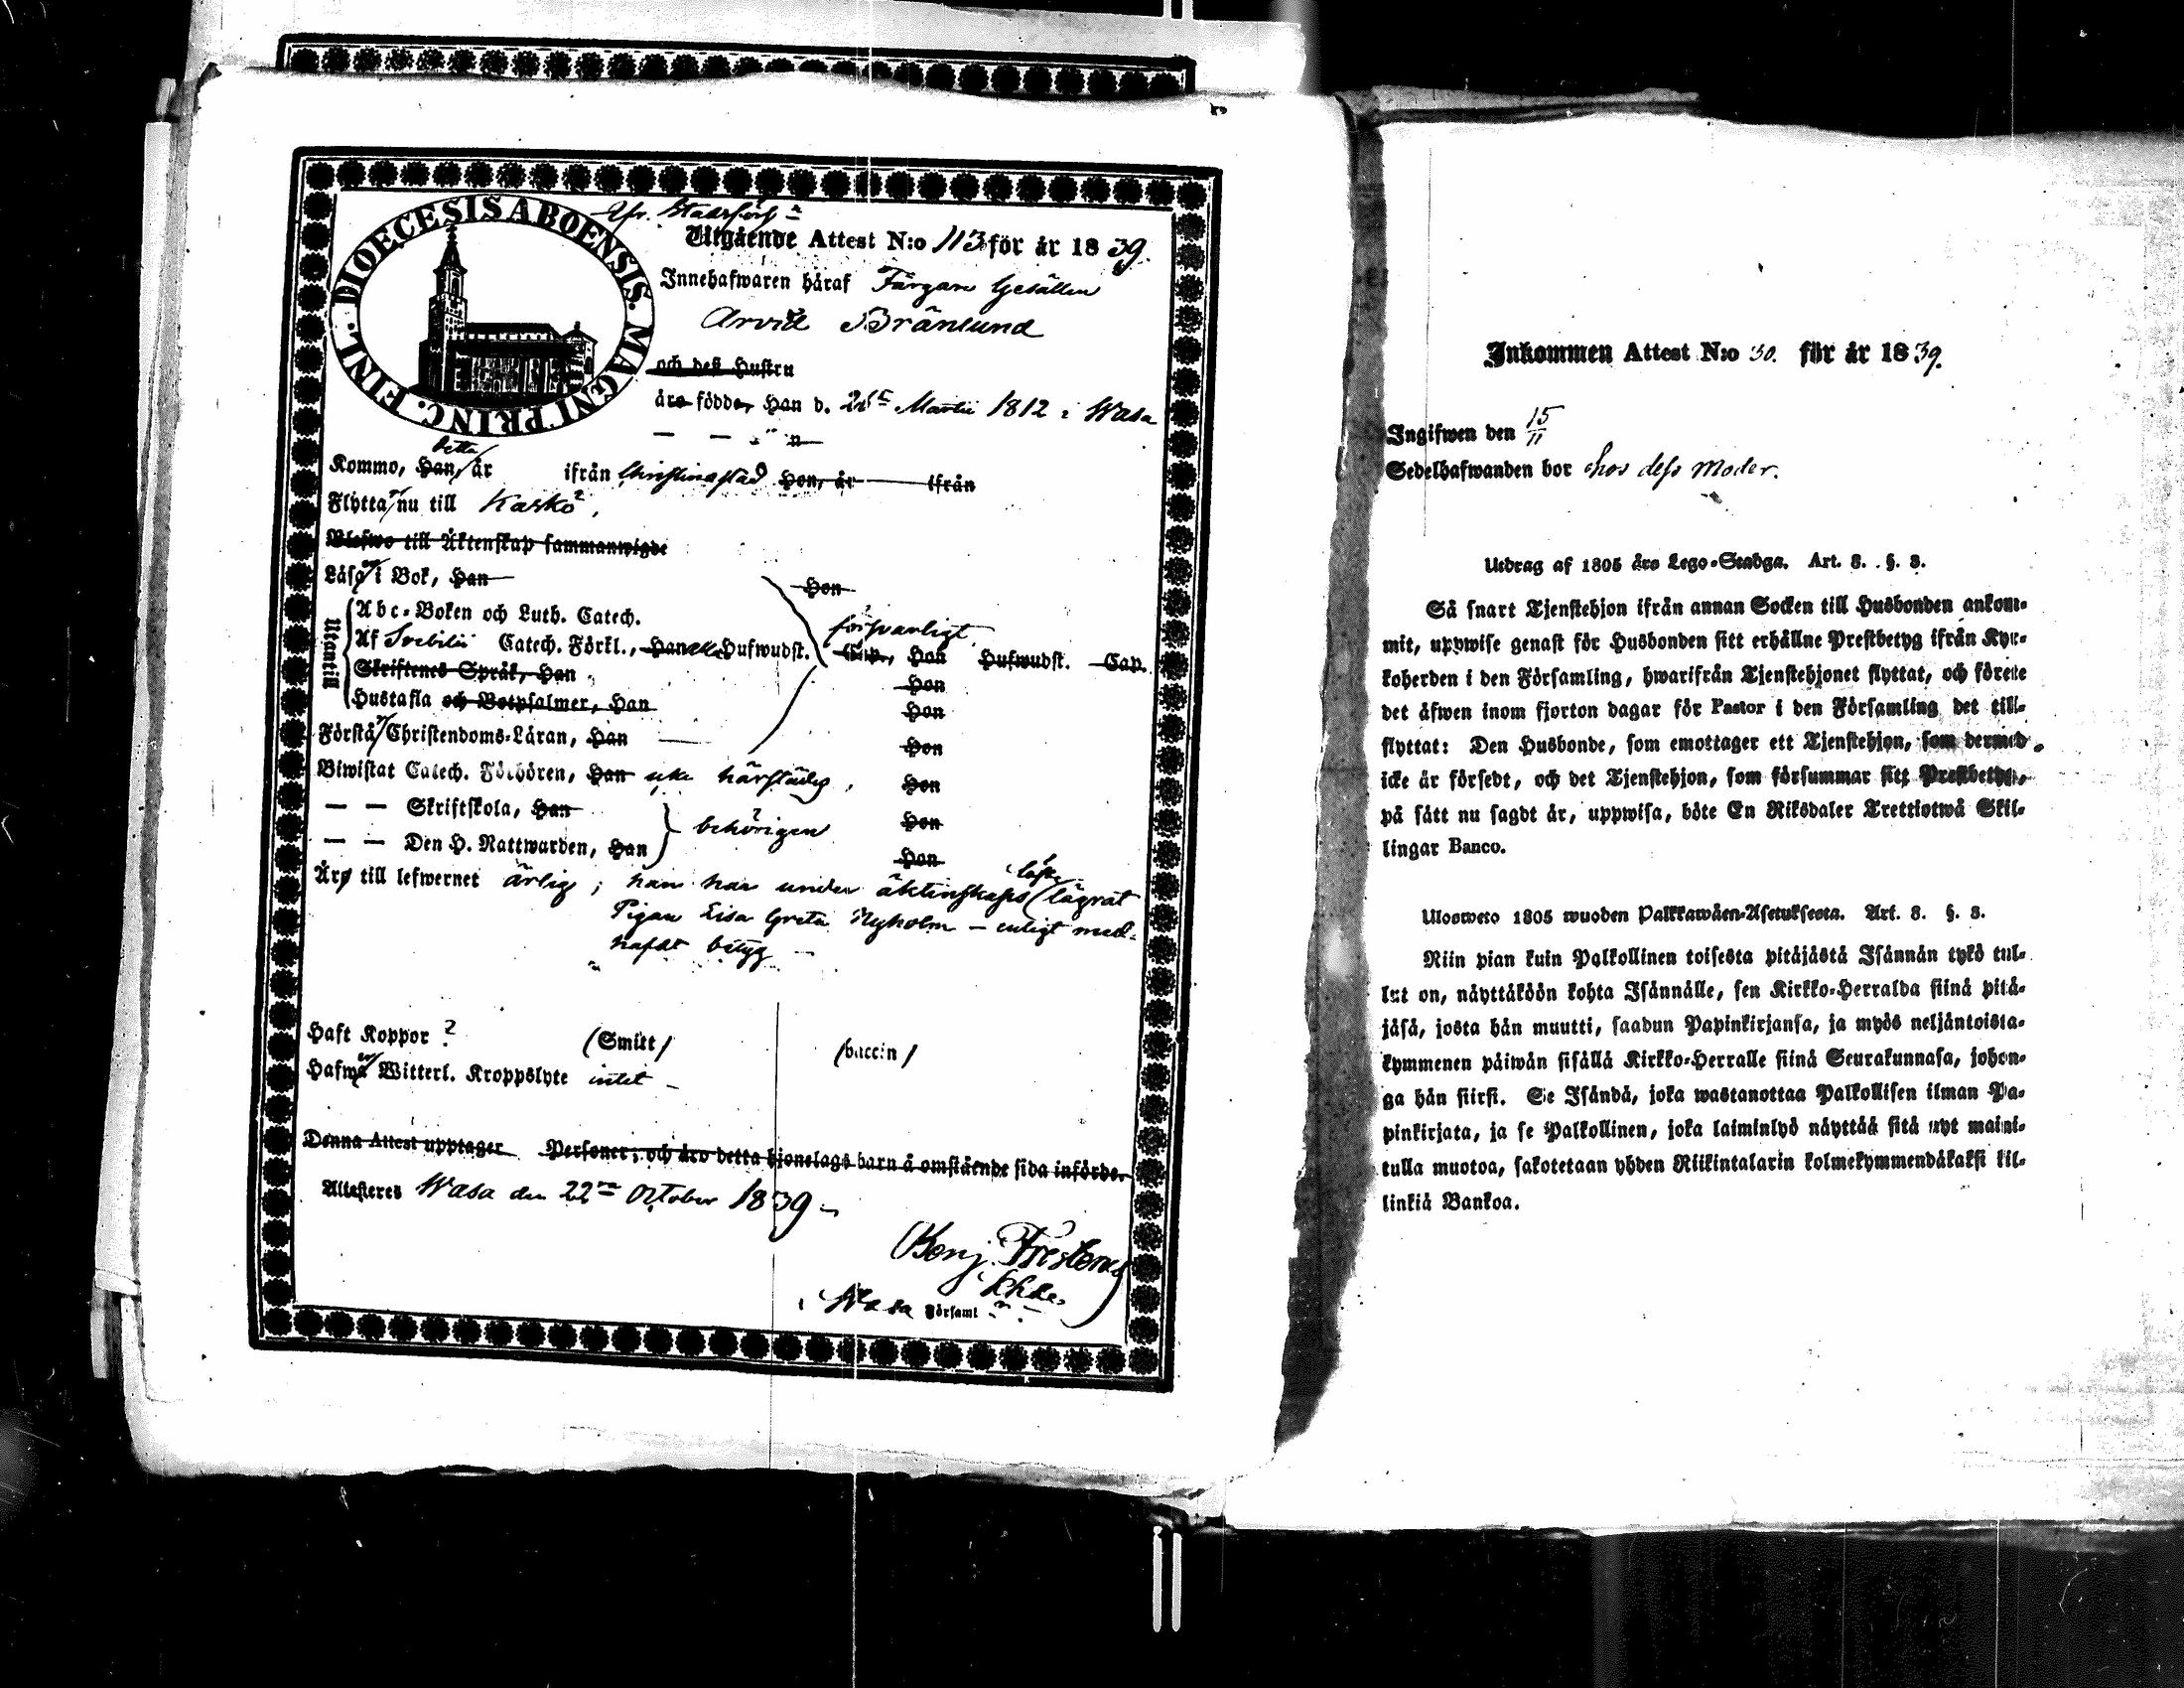 DIOECESIS ABOENSIS. MAGNI PRINC. FINL.
Utgående Attest N:o 113 för år 1839.
Innehafwaren häraf Färgare Gesällen
Arvid Bränlund
och deß Hustru
äro födde, Han d. Martii 1812 i Wasa
— — n
detta
Kommo, Han, år ifrån Christinestad Hon, år ifrån
Flytta nu till Kaskö,
Blefwo till Äktenskap sammanwigde
Läsa i Bok, Han Hon
Utantill
Abc-Boken och Luth. Catech.
försvarligt
Af Svebilii Catech. Förkl., Han Hufwudst. Cap., Hon Hufwudst. Cap.
Skriftenes Språk, Han Hon
Hustafla och Botpsalmer, Han Hon
Förstå Christendoms-Läran, Han Hon
Biwistat Catech. Förhören, Han icke härstädes, Hon
— — Skriftskola, Han Hon
behörigen
— — Den H. Nattwarden, Han Hon
löfte
Äro till lefwernet ärlig; han har under äktenskaps lägrat
Pigan Lisa Greta Nyholm — enligt med-
hafdt betyg
Haft Koppor ? (Smitt) (vaccin)
Hafwa Witterl. Kroppslyte intet —
Denna Attest upptager Personer; och äro detta hjonelags barn å omstående sida införde.
Attesteras Wasa den 22 October 1839 —
Benj. Frosterus
Khde
i Wasa Församl
Inkommen Attest N:o 30. för år 1839.
Ingifwen den 15/11
Sedelhafwanden bor hos dess Moder.
Utdrag af 1805 års Lego-Stadga. Art. 8. §. 3.
Så snart Tjenstehjon ifrån annan Socken till Husbonden ankom-
mit, uppwise genast för Husbonden sitt erhållne Prestbetyg ifrån Kyr-
koherden i den Församling, hwarifrån Tjenstehjonet flyttat, och förete
det äfwen inom fjorton dagar för Pastor i den Församling det till-
flyttat: Den Husbonde, som emottager ett Tjenstehjon, som dermed
icke är försedt, och det Tjenstehjon, som försummar sitt Prestbetyg,
på sätt nu sagdt är, uppwisa, böte En Riksdaler Trettiotwå Skil-
lingar Banco.
Ulosweto 1805 wuoden Palkkawäen-Asetuksesta. Art. 8. §. 3.
Niin pian kuin Palkollinen toisesta pitäjästä Isännän tykö tul-
lut on, näyttäköön kohta Isännälle, sen Kirkko-Herralda siinä pitä-
jäsä, josta hän muutti, saadun Papinkirjansa, ja myös neljäntoista-
kymmenen päiwän sisällä Kirkko-Herralle siinä Seurakunnasa, johon-
ga hän siirsi. Se Isändä, joka wastanottaa Palkollisen ilman Pa-
pinkirjata, ja se Palkollinen, joka laiminlyö näyttää sitä nyt maini-
tulla muotoa, sakotetaan yhden Riikintalarin kolmekymmendäkaksi kil-
linkiä Bankoa.